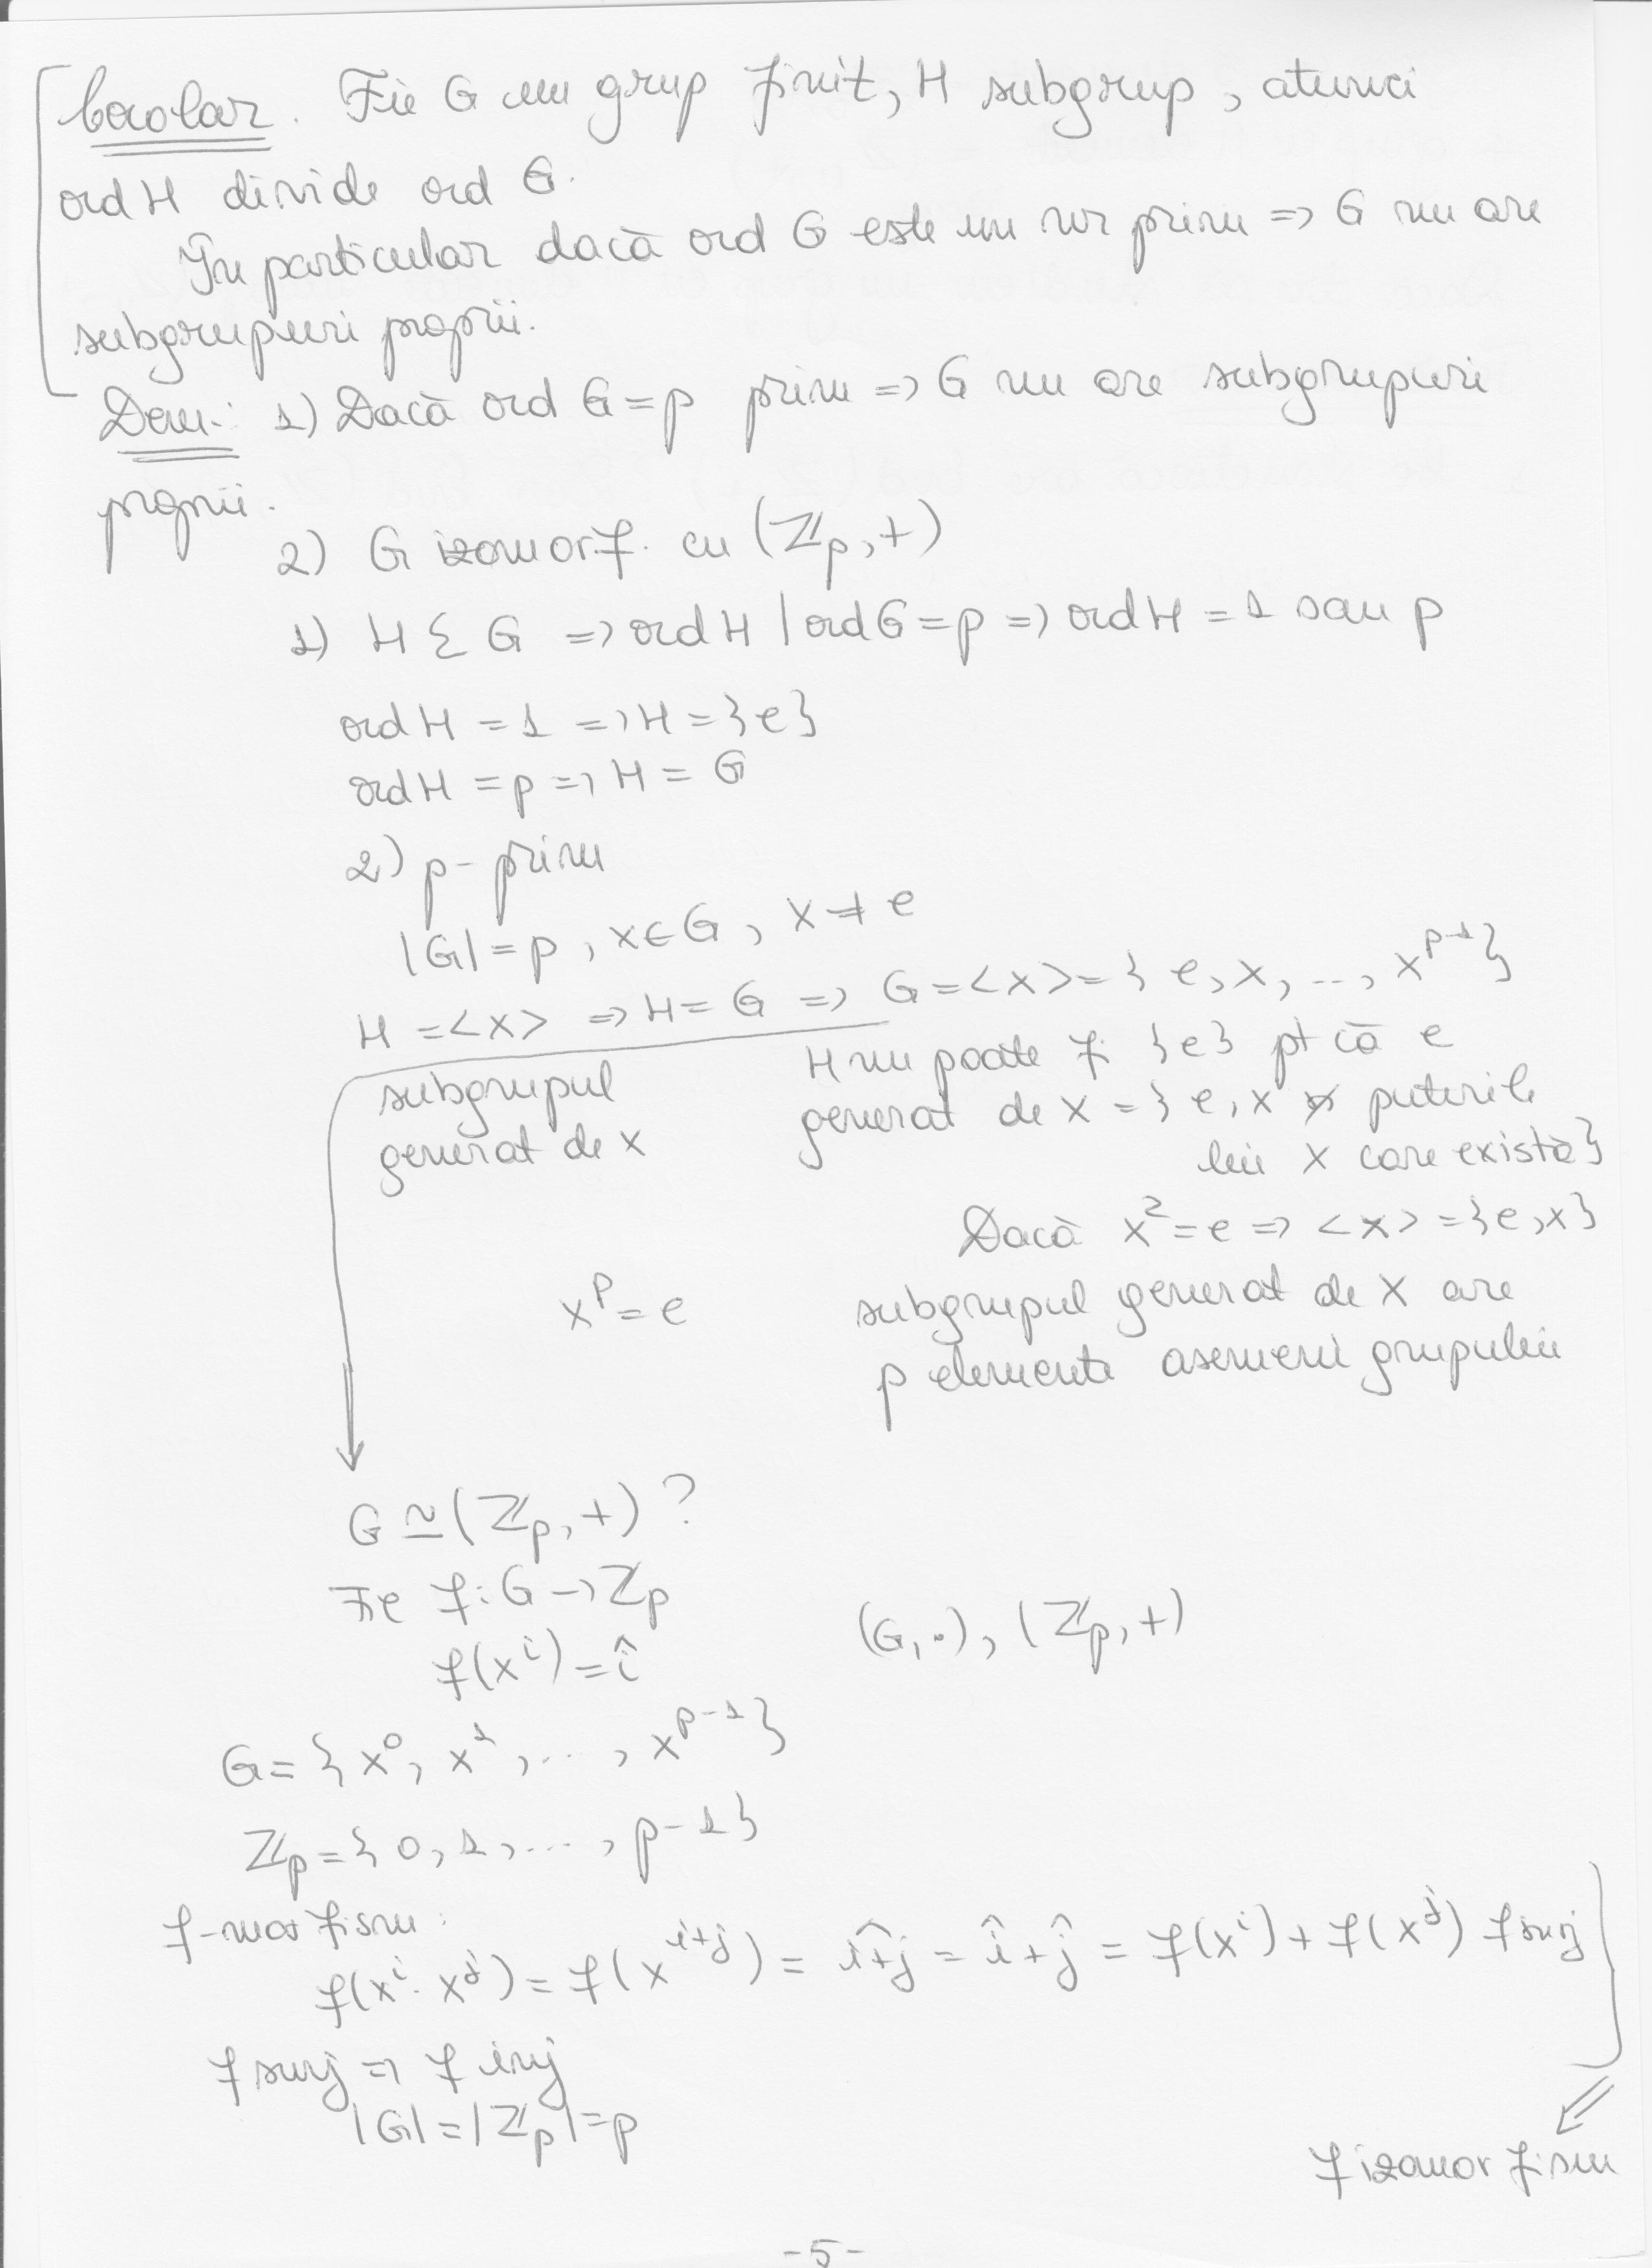 Corolar. Fie G un grup finit, H subgrup, atunci
ord H divide ord G.
În particular dacă ord G este un nr prim => G nu are
subgrupuri proprii.
Dem: 1) Dacă ord G = p prim => G nu are subgrupuri
proprii.
2) G izomorf. cu (ℤp, +)
1) H ≤ G => ord H | ord G = p => ord H = 1 sau p
ord H = 1 => H = {e}
ord H = p => H = G
2) p - prim
|G| = p, x ∈ G, x ≠ e
H = <x> => H = G => G = <x> = {e, x, ..., x^{p-1}}
subgrupul
generat de x
H nu poate fi {e} pt că e
generat de x = {e, x puterile
lui x care există}
Dacă x² = e => <x> = {e, x}
x^p = e
subgrupul generat de x are
p elemente asemeni grupului
G ≃ (ℤp, +) ?
Fie f: G -> ℤp
f(x^i) = î
(G, ·), (ℤp, +)
G = {x^0, x^1, ..., x^{p-1}}
ℤp = {0, 1, ..., p-1}
f - morfism:
f(x^i · x^j) = f(x^{i+j}) = \widehat{i+j} = î + ĵ = f(x^i) + f(x^j) f surj
f surj => f inj
|G| = |ℤp| = p
f izomorfism
-5-